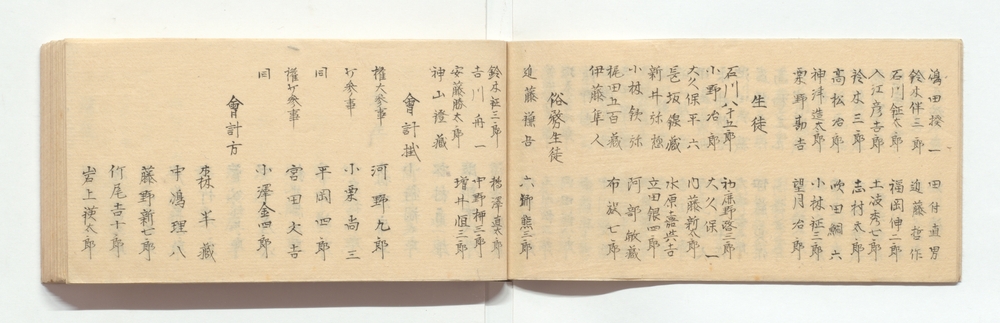 鴻田接一　田付直男
鈴木伴三郎　近藤哲作
石川鉦太郎　福岡伸二郎
入江彦吉郎　土波秀七郎
鈴木三郎　志村太郎
高松治郎　吹田鯛六
神津造太郎　小林祉三郎
栗野勘吉　望月治郎
生徒
石川八十五郎　初鹿野啓三郎
小野治郎　大久保一
大久保平六　内藤新太郎
長坂保蔵　水原嘉與吉
新井弥惣　立田銀四郎
小林欽弥　阿部敏蔵
梶田五百蔵　布武七郎
伊藤隼人
俗務生徒
近藤禎吾　六郷熊三郎
鈴木祉三郎　松澤真太郎
吉川舟一　中野柳三郎
安藤勝太郎　増井恒三郎
神山禮蔵
會計掛
権大参事　河野九郎
少参事　小栗尚三
同　平岡四郎
権少参事　富田丈吉
同　小澤金四郎
會計方
森半蔵
中鴻理八
藤野新七郎
竹尾吉十郎
岩上禊太郎